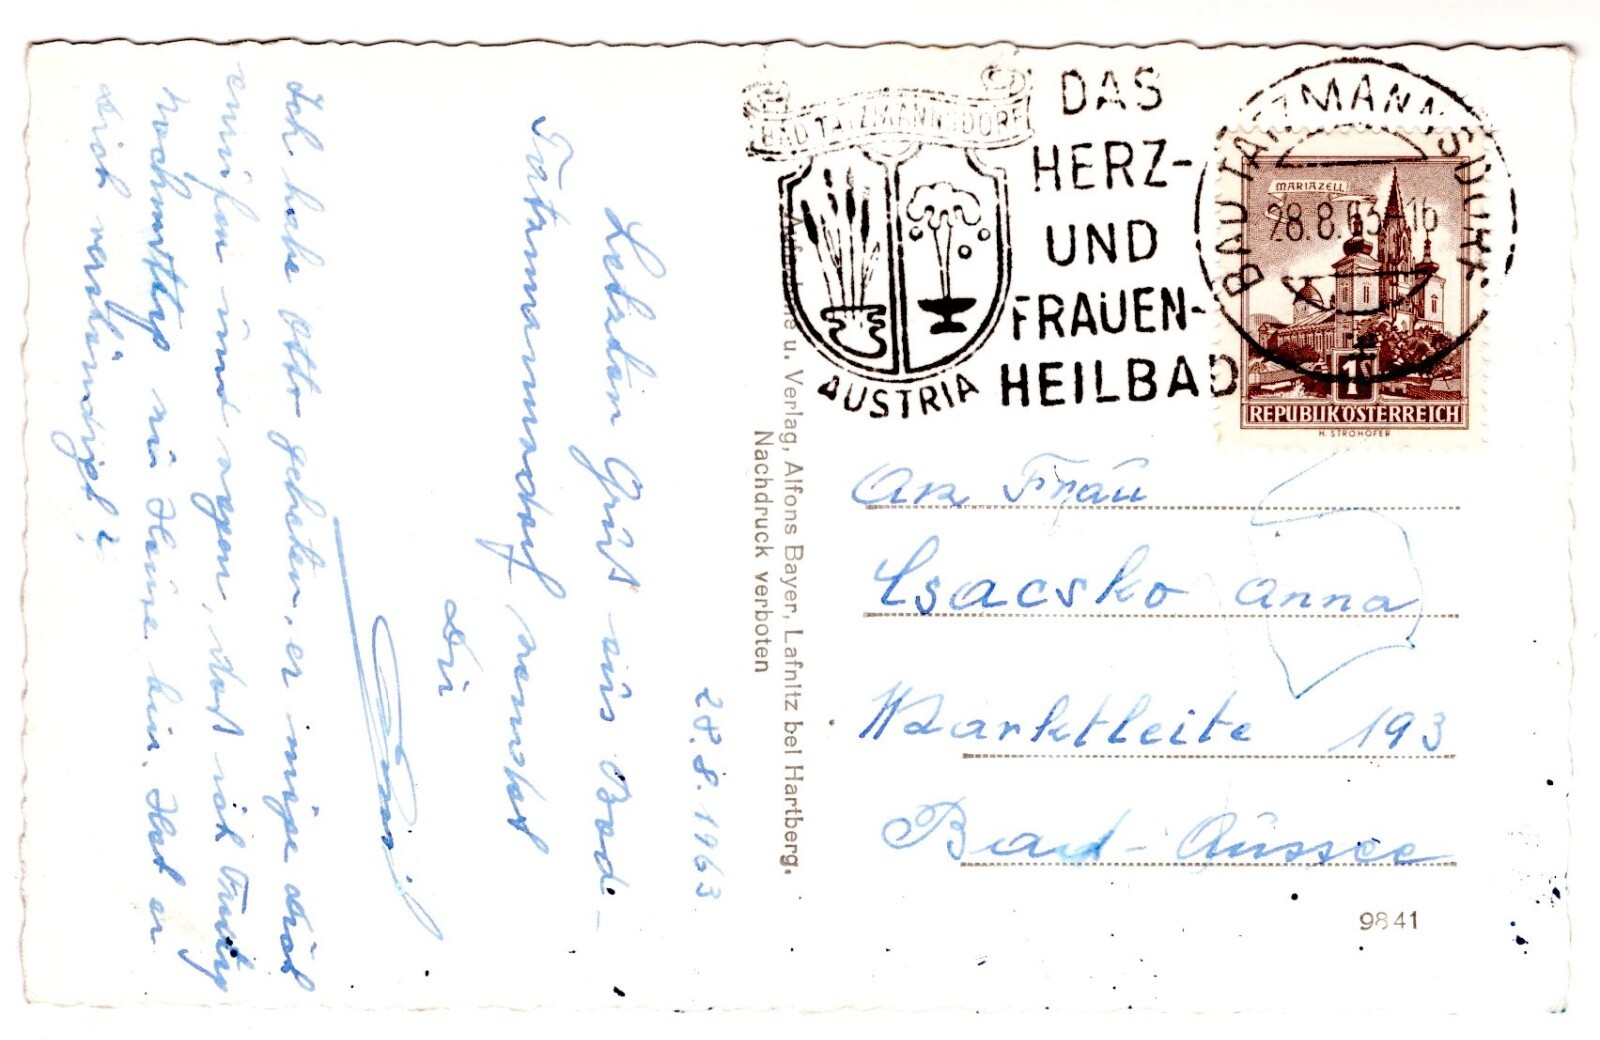 28.8.1963
Letzten Gruß aus Bad-
Tatzmannsdorf sendet
Dir
Ich habe Otto gebeten, er möge dich
anrufen und sagen, daß ich Freitag
Nachmittag zu Hause bin. Hat er
dich verständigt?
Aufnahme u. Verlag, Alfons Bayer, Lafnitz bei Hartberg.
Nachdruck verboten
BAD TATZMANNSDORF
AUSTRIA
DAS
HERZ-
UND
FRAUEN-
HEILBAD
BAD TATZMANNSDORF
28.8.63-16
MARIAZELL
1
REPUBLIK ÖSTERREICH
H. STROHOFER
An Frau
Csacsko Anna
Marktleite 193
Bad-Aussee
9841